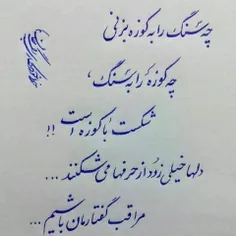 چه سنگ را به کوزه بزنی
چه کوزه را به سنگ،
شکست با کوزه است !!
دلها خیلی زود از حرفها می شکنند ...
مراقب گفتارمان باشیم ...